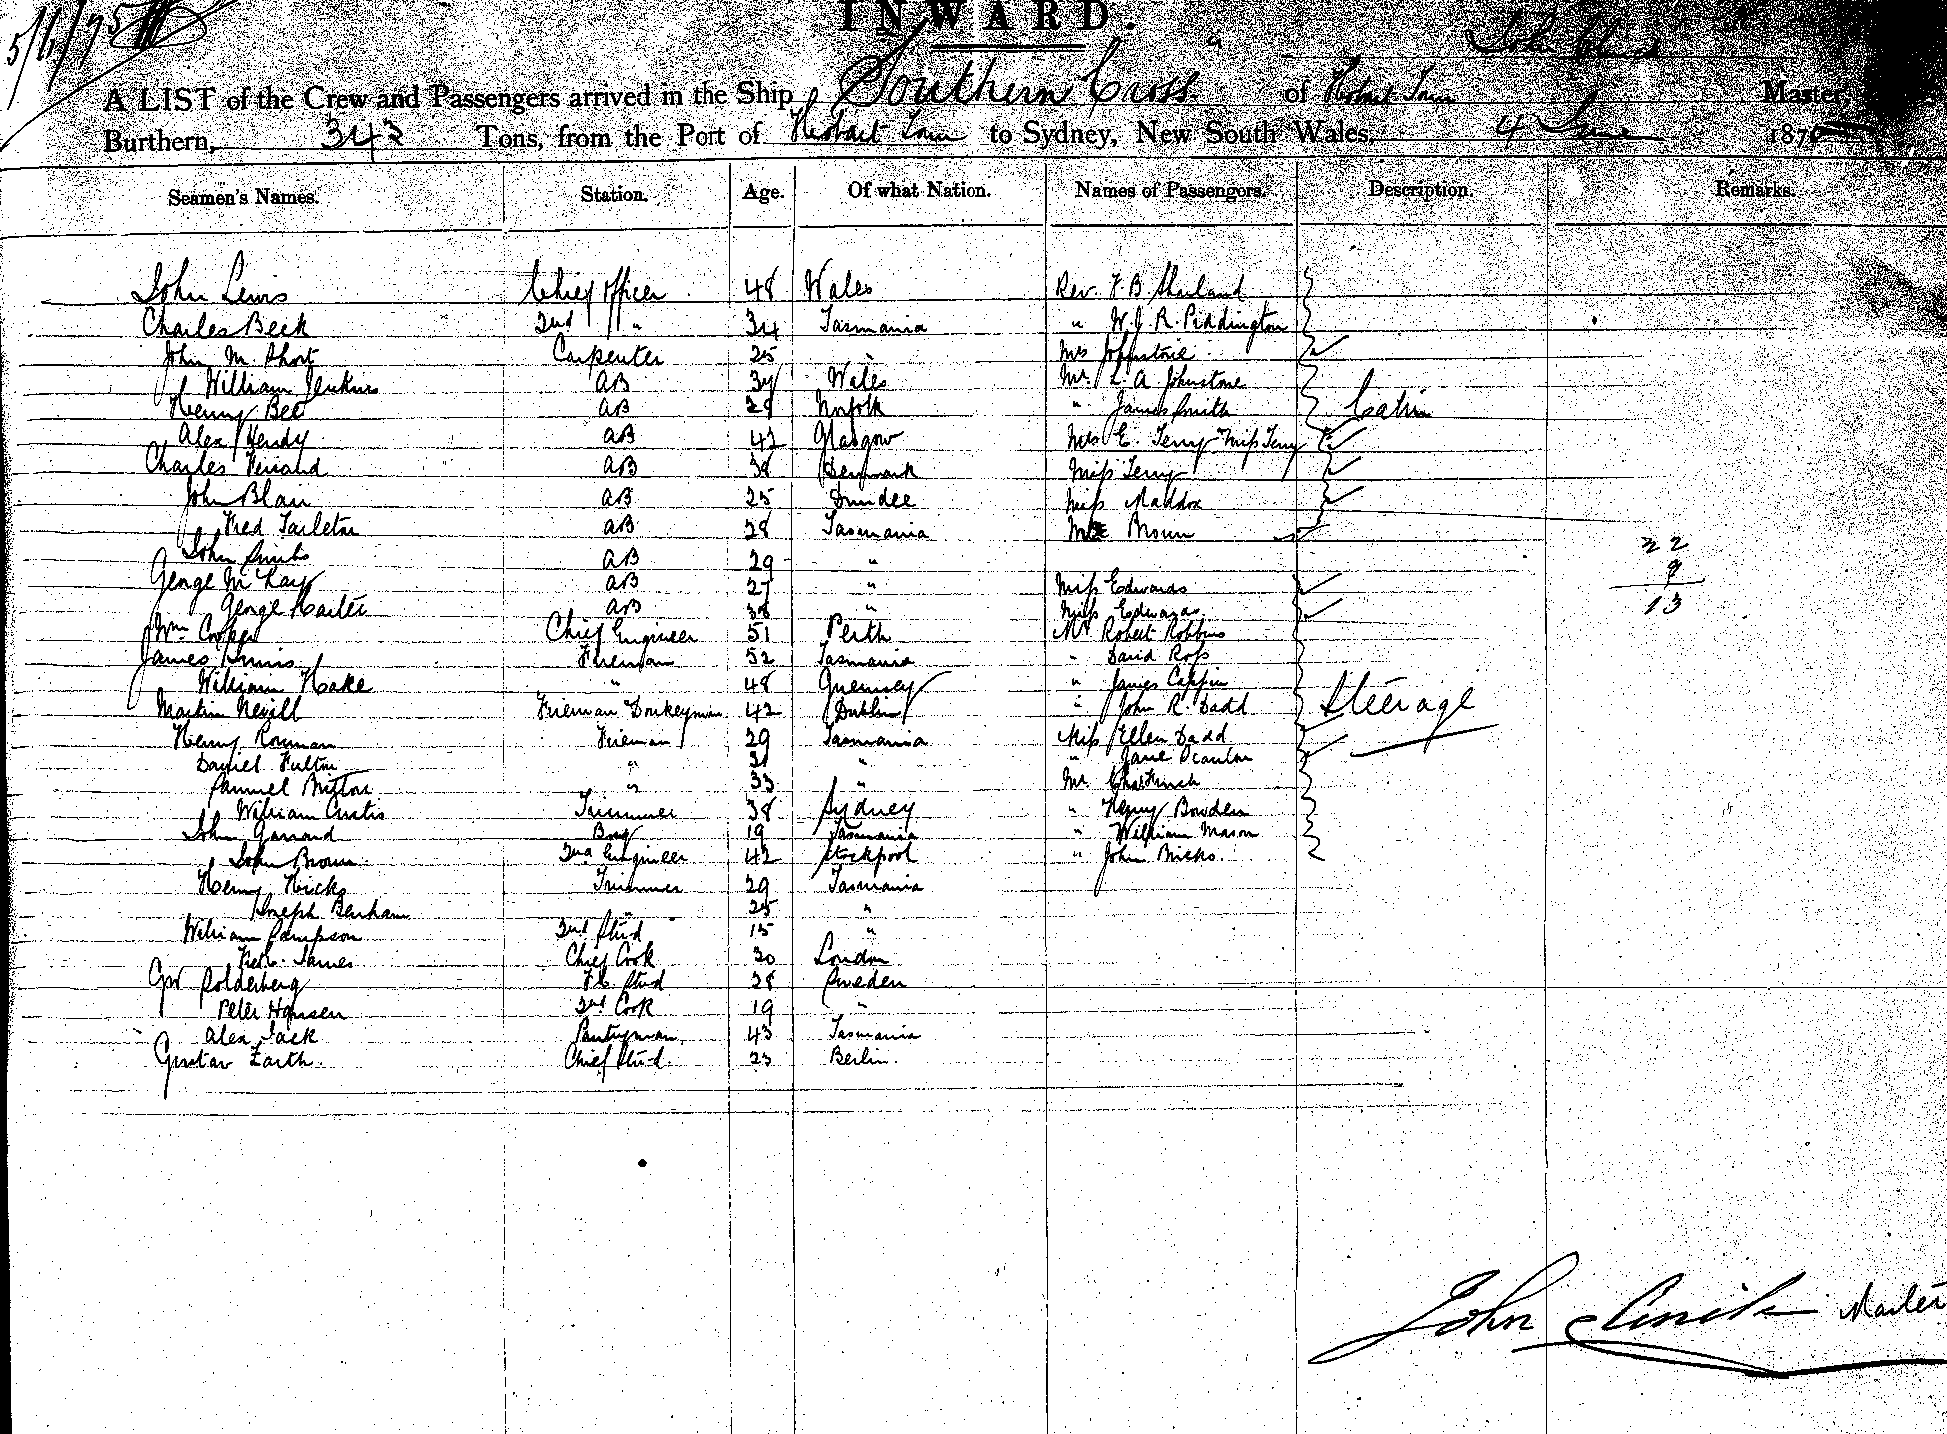 5/6/75
INWARD.
A LIST of the Crew and Passengers arrived in the Ship Southern Cross of Hobart Town John Master,
Burthern, 343 Tons, from the Port of Hobart Town to Sydney, New South Wales, 4 June 187
Seamen's Names. Station. Age. Of what Nation. Names of Passengers. Description. Remarks.
John Lewis Chief Officer 48 Wales Rev. F. B. Sharland
Charles Beck 2nd " 34 Tasmania " W. J. R. Piddington
John M. Short Carpenter 25 " Mrs Johnstone
William Jenkins AB 34 Wales Mr. L. A Johnstone
Henry Bee AB 29 Norfolk " James Smith Cabin
Alex Hendy AB 42 Glasgow Mrs E. Terry Miss Terry
Charles AB 38 Denmark Miss Terry
John Blair AB 25 Dundee Miss Maddox
Fred Tarleton AB 28 Tasmania Brown
John Smith AB 29 "
22
George McKay AB 27 " Miss Edwards
9
George Carter AB 38 " Miss Edwards
13
Wm Cooper Chief Engineer 51 Perth Mr Robert Robbins
James Fireman 52 Tasmania " David Ross
William Hake " 48 Guernsey " James Cappin
Martin Nevill Fireman Donkeyman 42 Dublin " John R. Dadd Steerage
Henry Fireman 29 Tasmania Miss Ellen Dadd
Daniel Fulton " 31 " " Jane Scanlon
Samuel Britton " 33 " Mr Chas
William Curtis Trimmer 38 Sydney " Henry Bowden
John Garrard Boy 19 Tasmania " William Mason
John Brown 2nd Engineer 42 Stockpool " John Bricks.
Henry Hicks Trimmer 29 Tasmania
Joseph Benham " 25 "
William Sampson 2nd Stud 15 "
James Chief Cook 30 London
GW Solderberg F.C. Stud 28 Sweden
Peter Hansen 2nd Cook 19 "
Alex Jack Pantryman 43 Tasmania
Gustav Zarth. Chief Stud. 23 Berlin
John Smith Master